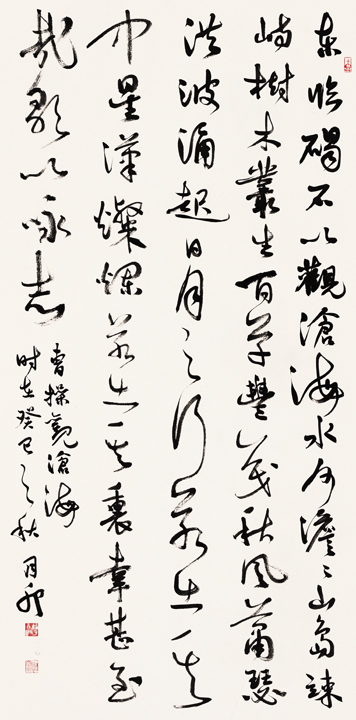 東臨碣石以觀滄海水何澹〻山島竦
峙樹木叢生百草豐茂秋風蕭瑟
洪波涌起日月之行若出其
中星漢燦爛若出其裏幸甚至
哉歌以詠志
曹操觀滄海
時在癸巳之秋月